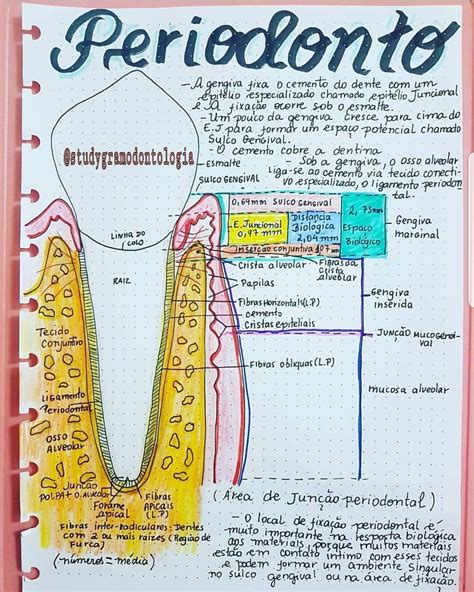 Periodonto
- A gengiva fixa o cemento do dente com um
epitélio especializado chamado epitélio Juncional
e JA fixação ocorre sob o esmalte.
- Um pouco da gengiva cresce para cima do
E.J para formar um espaço potencial chamado
Sulco Gengival.
- O cemento cobre a dentina
@studygramodontologia
Esmalte
- Sob a gengiva, o osso alveolar
Liga-se ao cemento via tecido conecti-
vo especializado, o ligamento periodon
tal.
SULCO GENGIVAL
0,69mm SULCO GENGIVAL
E. Juncional
0,97 mm
Distancia
Biologica
2,04 mm
2,73mm
Espaço
Biológico
Inserção conjuntiva 107 mm
Gengiva
marginal
LINHA DO
COLO
RAIZ
Crista alveolar
Fibras da
crista
alveolar
Papilas
Gengiva
inserida
Fibras Horizontais (L.P)
cemento
Cristas epiteliais
JUNÇÃO MUCOGENGI-
VAL
Tecido
Conjuntivo
Fibras obliquas (L.P)
mucosa alveolar
Ligamento
Periodontal
Osso
Alveolar
Junção
POLPA + O. ALVEOLAR
Forame
apical
Fibras
Apicais
(L.P)
Fibras inter-Radiculares: Dentes
com 2 ou mais raízes (Região de
Furca)
(números = media)
(Area de Junção periodontal)
- O local de fixação periodontal é
muito importante na resposta biológica
aos materiais, porque muitos materiais
estão em contato intimo com esses tecidos
e podem formar um ambiente singular
no sulco gengival ou na área de fixação.